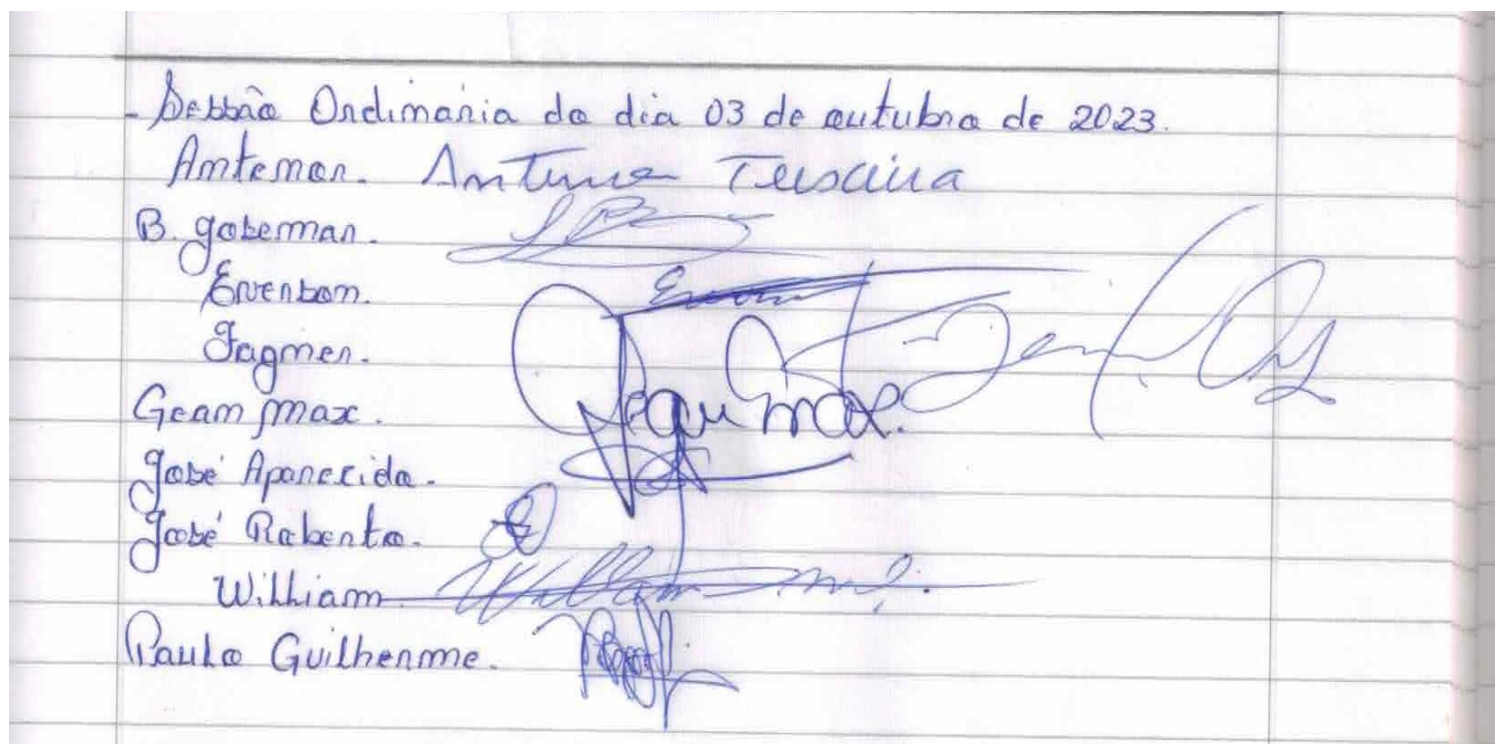 - Sessão Ordinária do dia 03 de outubro de 2023.
Antenor. Antenor Teixeira
B. Josemar.
Everson.
Fagner.
Gean Max.
José Aparecido.
José Roberto.
William.
Paulo Guilherme.